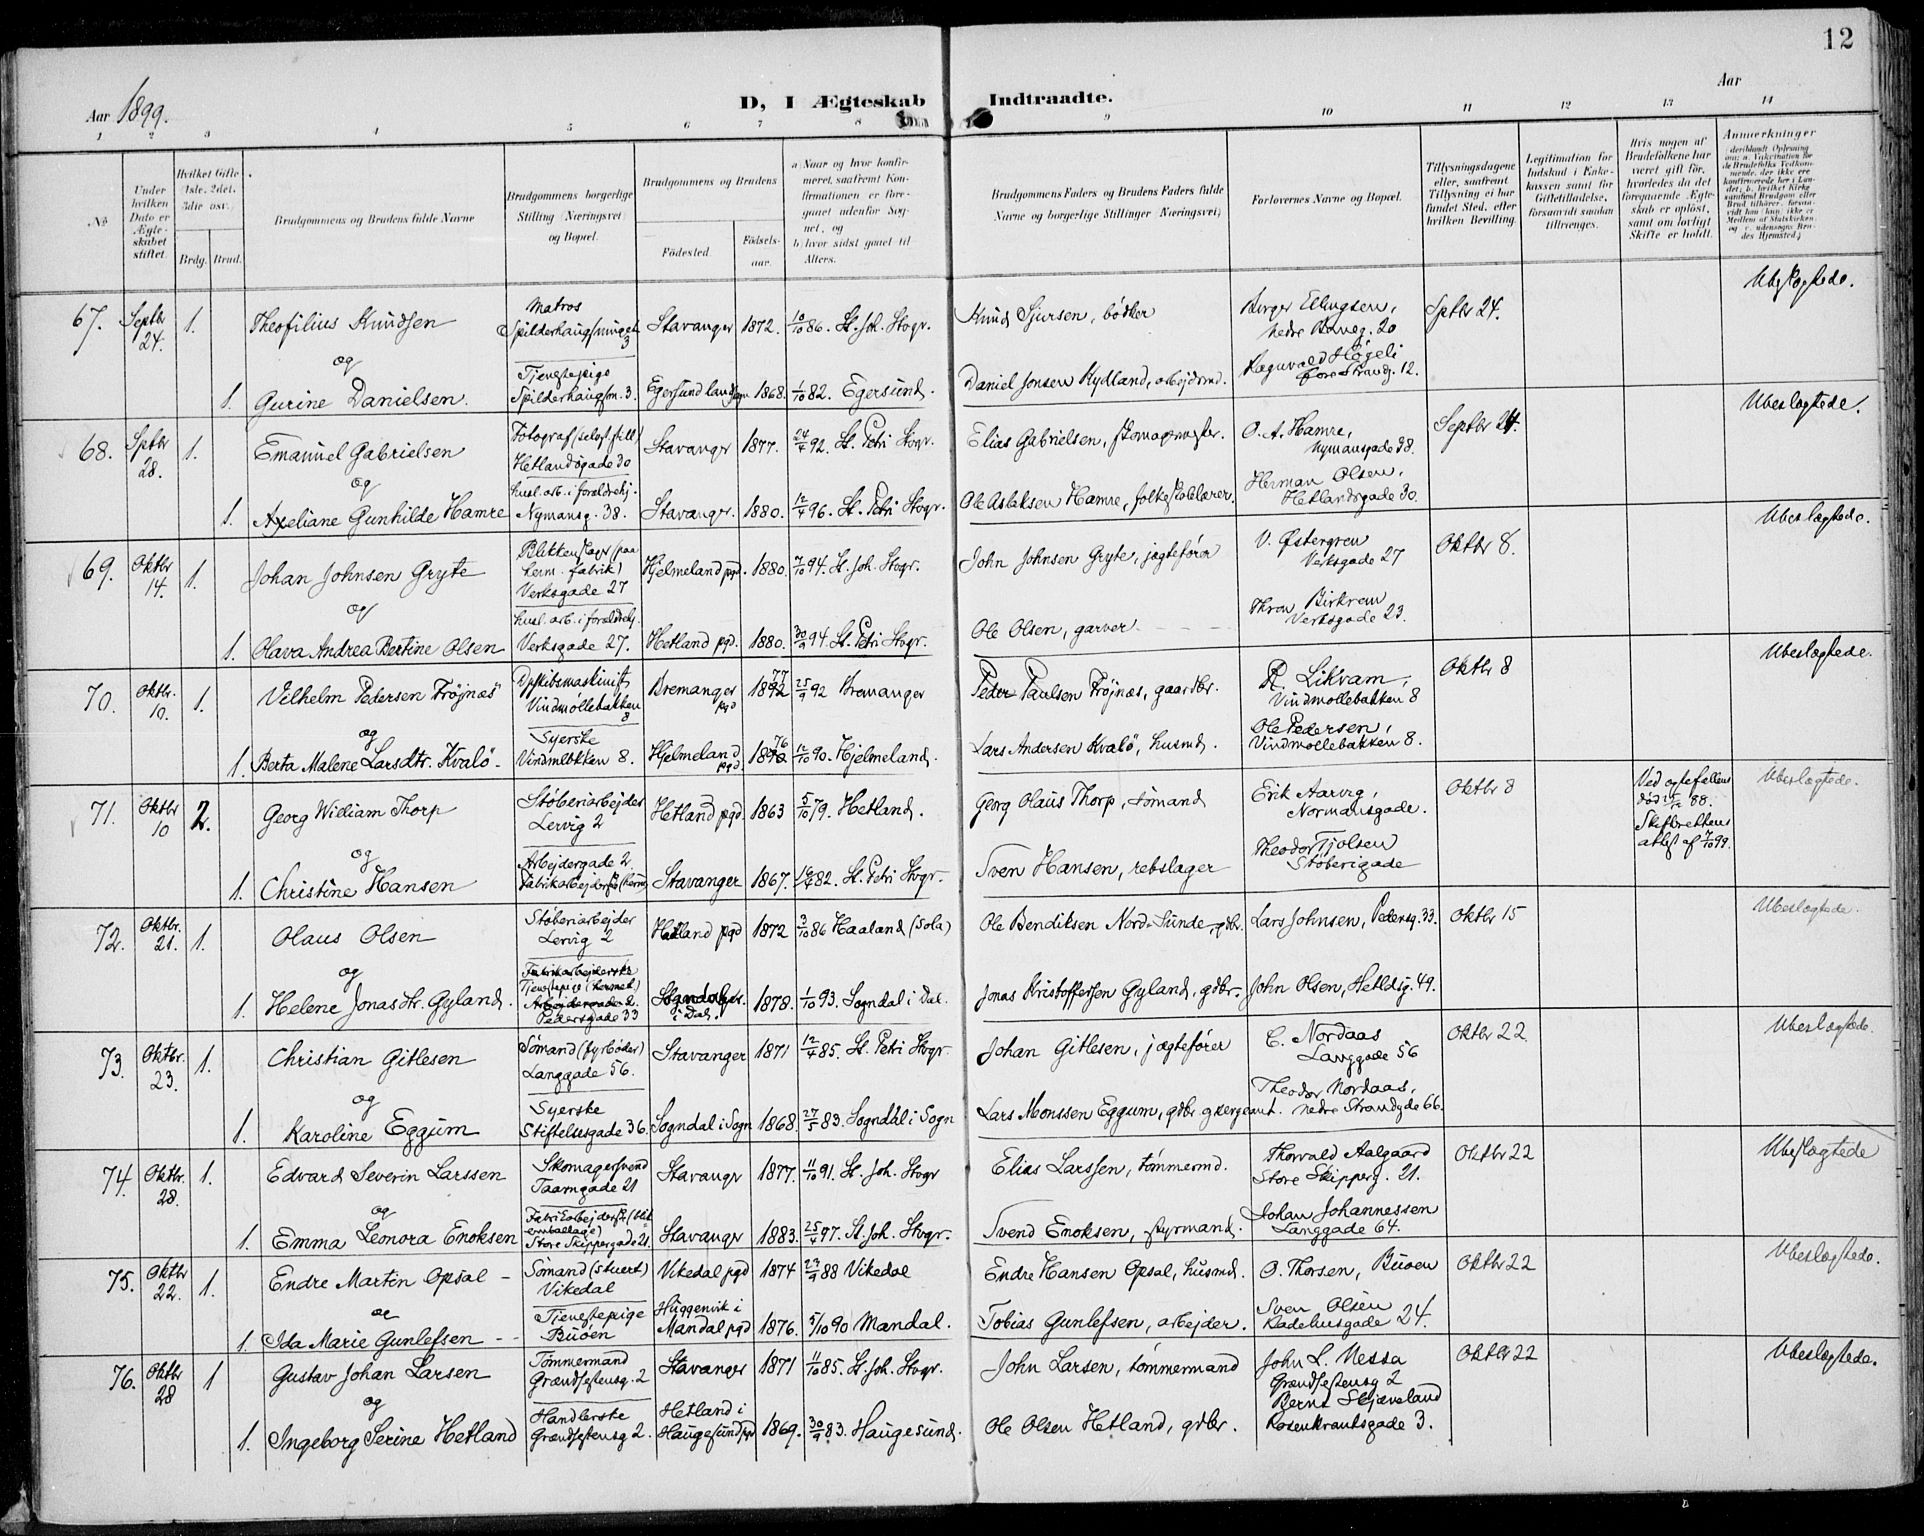 12
Aar 1899.
D, I Ægteskab Indtraadte.
Aar
1 2 3 4 5 6 7 8 9 10 11 12 13 14
No
Under hvilken Dato er Ægteskabet stiftet.
Hvilket Gifte (1ste, 2det, 3die osv.)
Brdg. Brud.
Brudgommens og Brudens fulde Navne
Brudgommens borgerlige Stilling (Næringsvei) og Bopæl.
Brudgommens og Brudens
Födested.
Födselsaar.
a) Naar og hvor konfirmeret, saafremt Konfirmationen er foregaaet udenfor Sognet, og
b) hvor sidst gaaet til Alters.
Brudgommens Faders og Brudens Faders fulde Navne og borgerlige Stillinger (Næringsvei)
Forlovernes Navne og Bopæl.
Tillysningsdagene eller, saafremt Tillysning ei har fundet Sted, efter hvilken Bevilling.
Legitimation for Indskud i Enkekassen samt for Giftetilladelse, forsaavidt saadan tiltrænges.
Hvis nogen af Brudefolkene har været gift för, hvorledes da det foregaaende Ægteskab er oplöst, samt om lovligt Skifte er holdt.
Anmærkninger
67. Septbr 24. 1. Theofilius Knudsen Matros Spilderhaugsmuget 3 Stavanger 1872. 10/10 86. St. Joh. Stvgr. Knud Sjursen, bødker Birger Ellingsen, nedre Baneg. 20 Sptbr 24. Ubeslægtede.
og
1. Gurine Danielsen. Tjenestepige Spilderhaugsm. 3. Egersund landsogn 1868. 1/10 82. Egersund. Daniel Jonsen Rydland, arbejdsmd. Ragnvald Høgeli Store Strandg. 12.
68. Sptbr 28. 1. Emanuel Gabrielsen Fotograf (selvst. still) Hetlandsgade 30 Stavanger 1877. 24/4 92. St. Petri Stvgr. Elias Gabrielsen, skomagermester. O. A. Hamre, Nymansgade 38. Septbr 24. Ubeslægtede.
og
1. Axeliane Gunhilde Hamre husl. arb. i forældrehj. Nymansg. 38. Stavanger. 1880. 12/4 96. St. Petri Stvgr. Ole Aslaksen Hamre, folkeskolelærer. Herman Olsen, Hetlandsgade 30.
69. Oktbr 14. 1. Johan Johnsen Gryte Blikkenslager (paa herm. fabrik) Verksgade 27 Hjelmeland pgd. 1880. 7/10 94. St. Joh. Stvgr. John Johnsen Gryte, jagtefører V. Østergren Verksgade 27 Oktbr 8. Ubeslægtede.
og
1. Olava Andrea Bertine Olsen husl. arb. i forældrehj. Verksgade 27. Hetland pgd. 1880. 30/9 94. St. Petri Stvgr. Ole Olsen, garver Thron Birkrem Verksgade 23.
70. Oktbr. 10. 1. Vilhelm Pedersen Frøjnæs Dpskibsmaskinist Vindmøllebakken 8 Bremanger pgd 1892 77 25/9 92 Bremanger Peder Paulsen Frøjnæs, gaardbr. R. Likvam, Vindmøllebakken 8 Oktbr 8 Ubeslægtede.
og
1. Berta Malene Larsdtr. Kvalö. Syerske Vindmlbkken 8. Hjelmeland pgd 1890 76 12/10 90. Hjelmeland. Lars Andersen Kvalö, husmd. Ole Pedersen, Vindmøllebakken 8.
71. Oktbr 10 2. Georg William Thorp Støberiarbejder Lervig 2 Hetland pgd 1863 5/10 79. Hetland. Georg Olaus Thorp, sömand Erik Aarvig, Normansgade. Oktbr 8 Ved egtefællens död 88. Skifterettens attest af 7/10 99. Ubeslægtede.
og
1. Christine Hansen Arbejdergade 2. Fabrikarbejderske (herm) Stavanger 1867. 16/4 82. St. Petri Stvgr. Sven Hansen, rebslager Theodor Tjolsen Støberigade
72. Oktbr. 21. 1. Olaus Olsen Støberiarbejder Lervig 2 Hetland pgd 1872 3/10 86 Haaland (Sola) Ole Bendiksen Nord-Sunde, gdbr. Lars Johnsen, Pedersg. 33. Oktbr 15 Ubeslægtede.
og
1. Helene Jonasdtr. Gyland. Fabrikarbejderske Tjenestepige (hermet.) Arbejdergade 2. Pedersgade 33 Sogndal i Dal. 1878. 1/10 93. Sogndal i Dal. Jonas Kristoffersen Gyland, gdbr. John Olsen, Hetldsg. 49.
73. Oktbr. 23. 1. Christian Gitlesen Sömand (fyrböder) Langgade 56. Stavanger 1871 12/4 85. St. Petri Stvgr. Johan Gitlesen, jagtefører C. Nordaas Langgade 56 Oktbr 22. Ubeslægtede.
og
1. Karoline Eggum Syerske Stiftelsesgade 36. Sogndal i Sogn 1868. 27/5 83. Sogndal i Sogn Lars Monssen Eggum, gdbr og sergeant. Theodor Nordaas, nedre Strandgde 66.
74. Oktbr. 28. 1. Edvard Severin Larssen Skomagersvend Taarngade 21 Stavanger 1877. 11/10 91. St. Joh. Stvgr Elias Larssen, tömmermd. Thorvald Aalgaard Store Skipperg. 21. Oktbr 22 Ubeslægtede
og
1. Emma Leonora Enoksen Fabrikarbejderske (blikemballage) Store Skippergade 21. Stavanger 1883. 25/4 97. St. Joh. Stvgr. Svend Enoksen, styrmand. Johan Johannessen Langgade 64.
75. Oktbr 22. 1. Endre Martin Opsal Sömand (stuert) Vikedal Vikedal pgd 1874 23/9 88 Vikedal Endre Hansen Opsal, husmd. O. Thorsen, Buøen Oktbr 22 Ubeslægtede.
og
1. Ida Marie Gunlefsen Tjenestepige Buöen Huggenvik i Mandal pgd 1876. 5/10 90 Mandal. Tobias Gunlefsen, arbejder. Sven Olsen Kadehusgade 24.
76. Oktbr 28 1 Gustav Johan Larsen Tömmermand Grændseteng. 2 Stavanger 1871 11/10 85. St. Joh. Stvgr. John Larsen, tömmermand John L. Nessa Grændsesteng 2 Oktbr 22 Ubeslægtede.
og
1. Ingeborg Serine Hetland Handlerske Grændsesteng 2. Hetland i Haugesund pgd 1869. 30/9 83. Haugesund. Ole Olsen Hetland, gdbr. Bernt Skjæveland Rosenkrantsgade 3.